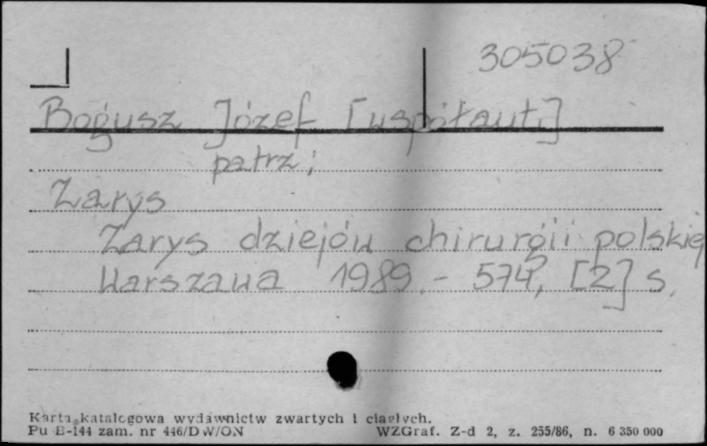 305038
Bogusz Józef [współaut.]
patrz:
Zarys
Zarys dziejów chirurgii polskiej
Warszawa 1989. - 574, [2] s.
Karta katalogowa wydawnictw zwartych i ciągłych.
Pu E-144 zam. nr 446/DW/ON WZGraf. Z-d 2, z. 255/86, n. 6 350 000